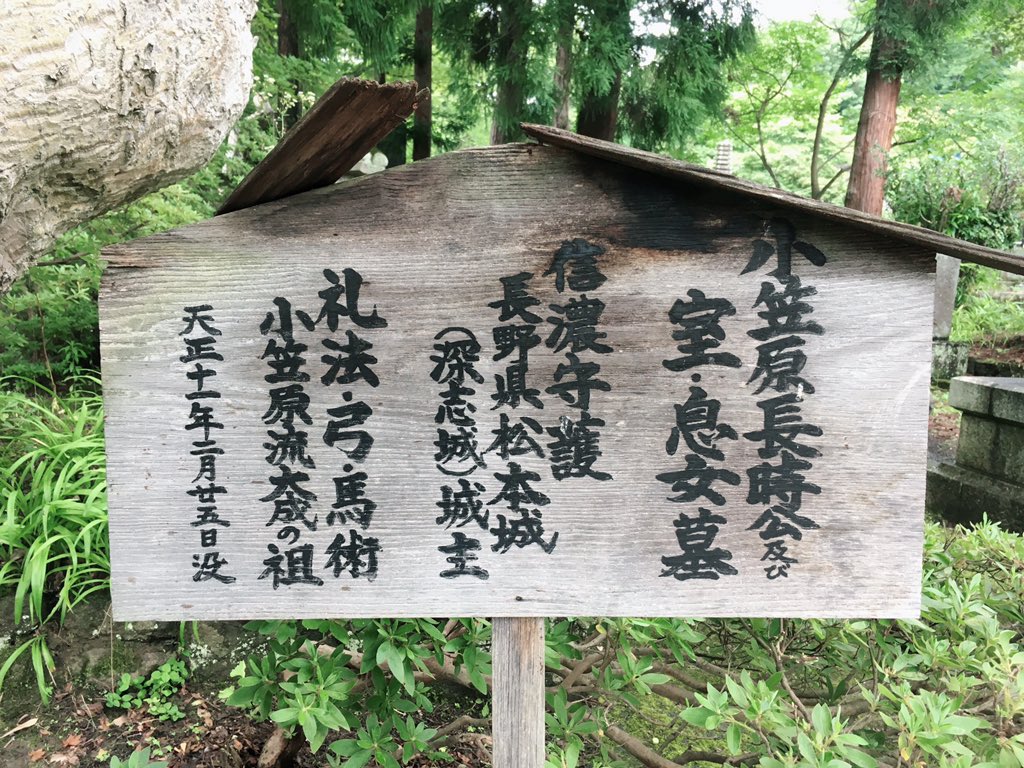 小笠原長時公及び
室・息女墓
信濃守護
長野県松本城
(深志城)城主
礼法・弓・馬術
小笠原流大成の祖
天正十一年二月廿五日没